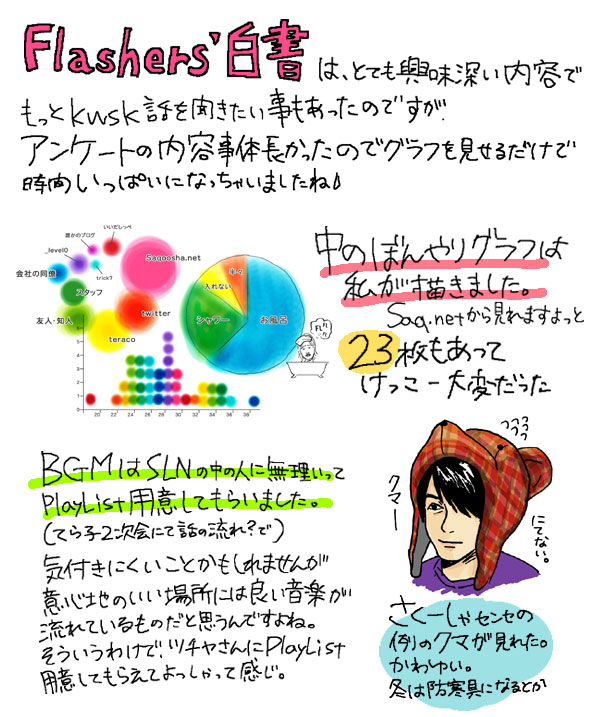 Flashers'白書 は、とても興味深い内容で
もっとkwsk話を聞きたい事もあったのですが、
アンケートの内容事体長かったのでグラフを見せるだけで
時間いっぱいになっちゃいましたね♪
誰かのブログ
いいだしっぺ
_level0
trick7
会社の同僚
Saqoosha.net
スタッフ
友人・知人
twitter
teraco
20 22 24 26 28 30 32 34 36 38
半々
入れない
シャワー
お風呂
FL
中のぼんやりグラフは
私が描きました。
Saq.netから見れますよっと
23枚もあって
けっこー大変だった
BGMはSLNの中の人に無理いって
PlayList用意してもらいました。
(てら子2次会にて話の流れ?で)
気付きにくいことかもしれませんが
意心地のいい場所には良い音楽が
流れているものだと思うんですよね。
そういうわけで、ツチヤさんにPlayList
用意してもらえてよっしゃって感じ。
クマー
にてない。
さくーしゃセンセの
例のクマが見れた。
かわゆい。
冬は防寒具になるとか